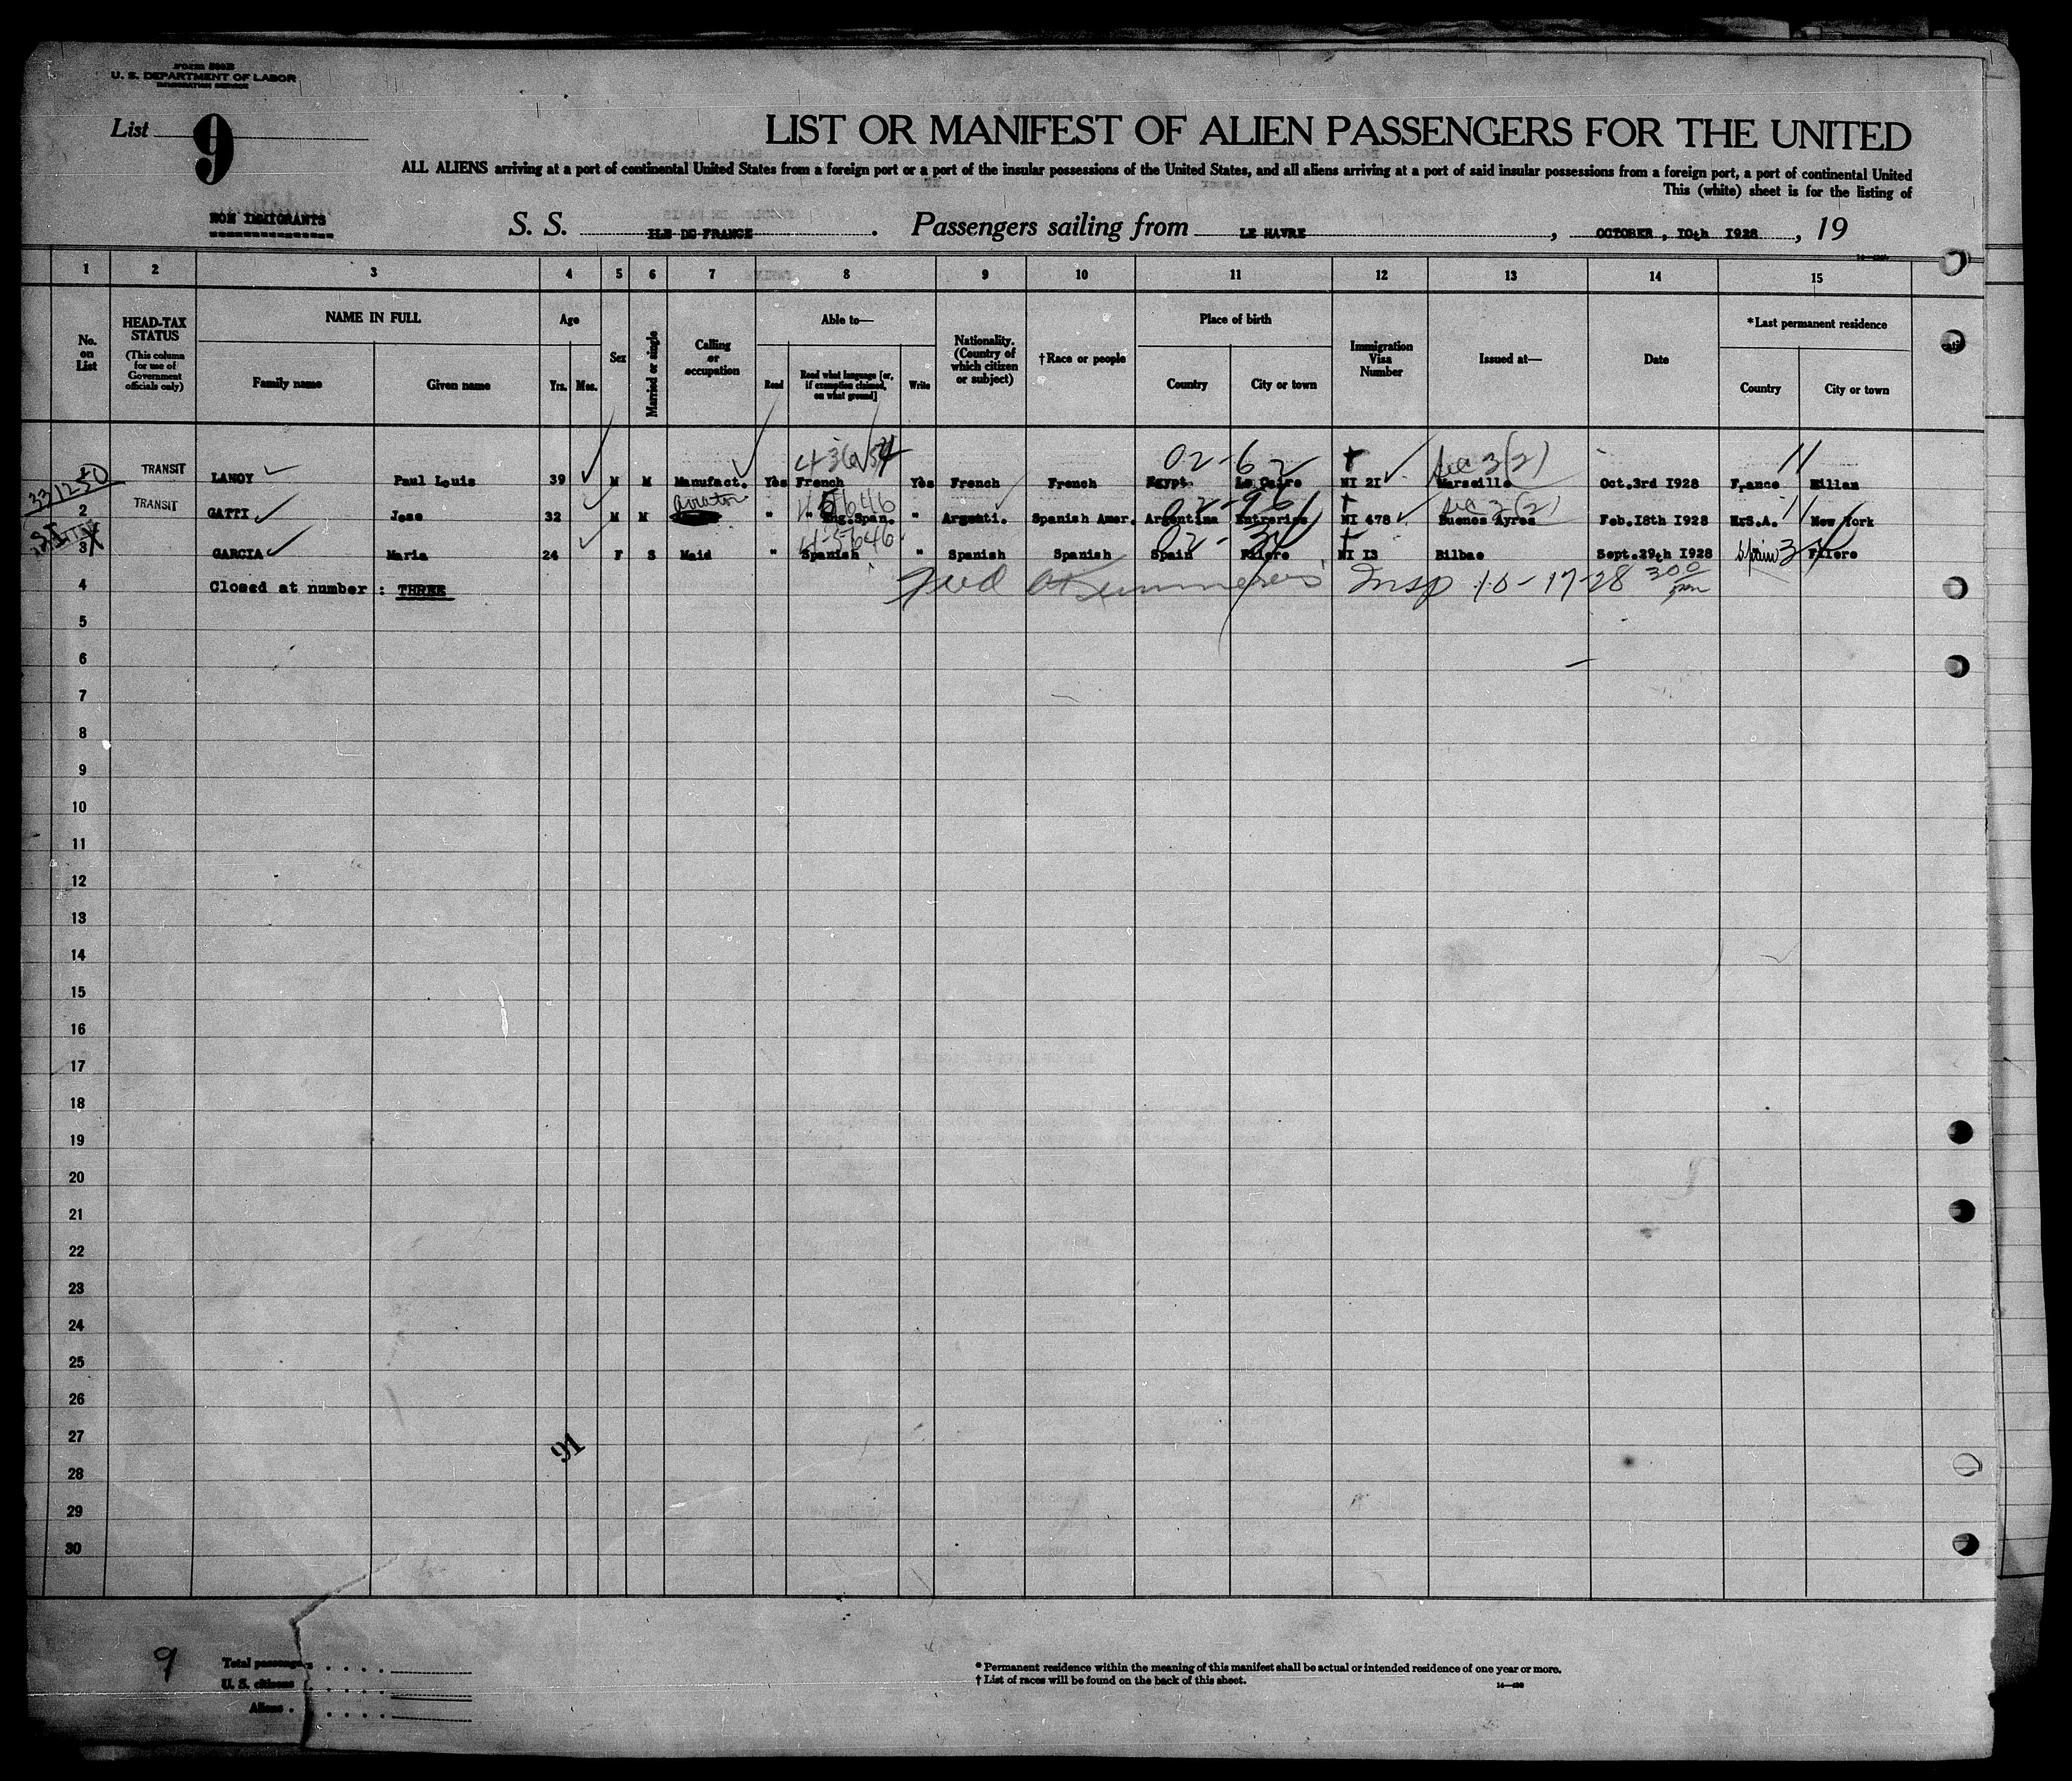 U. S. DEPARTMENT OF LABOR
IMMIGRATION SERVICE
List 9
LIST OR MANIFEST OF ALIEN PASSENGERS FOR THE UNITED
ALL ALIENS arriving at a port of continental United States from a foreign port or a port of the insular possessions of the United States, and all aliens arriving at a port of said insular possessions from a foreign port, a port of continental United
This (white) sheet is for the listing of
NON IMMIGRANTS
S. S. ILE DE FRANCE. Passengers sailing from LE HAVRE, OCTOBER, 10th 1928, 19
1 2 3 4 5 6 7 8 9 10 11 12 13 14 15
No. on List
HEAD-TAX STATUS
(This column for use of Government officials only)
NAME IN FULL
Family name
Given name
Age
Yrs. Mos.
Sex
Married or single
Calling or occupation
Able to—
Read
Read what language [or, if exemption claimed, on what ground]
Write
Nationality. (Country of which citizen or subject)
†Race or people
Place of birth
Country
City or town
Immigration Visa Number
Issued at—
Date
*Last permanent residence
Country
City or town
02-62
Sec 3(2)
11
TRANSIT LANOY Paul Louis 39 M M Manufact. Yes French Yes French French Egypt. Le Caire NI 21 Marseille Oct.3rd 1928 France Millan
331250
Aviator
Sec 3(2)
2 TRANSIT GATTI Jose 32 M M " " Eng.Span. " Argenti. Spanish Amer. Argentina Entrerios NI 478 Buenos Ayres Feb.18th 1928 New York
3 GARCIA Maria 24 F S Maid " Spanish " Spanish Spanish Spain Filere NI 13 Bilbao Sept.29th 1928 Spain Filere
4 Closed at number : THREE
Insp 10-17-28 300 pm
5
6
7
8
9
10
11
12
13
14
15
16
17
18
19
20
21
22
23
24
25
26
27
91
28
29
30
9
Total passengers
U. S. citizens
Aliens
* Permanent residence within the meaning of this manifest shall be actual or intended residence of one year or more.
† List of races will be found on the back of this sheet.